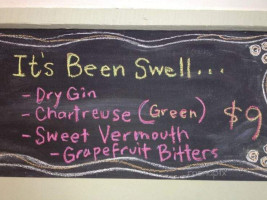 It's Been Swell...
- Dry Gin
- Chartreuse (Green)
- Sweet Vermouth
- Grapefruit Bitters
$9